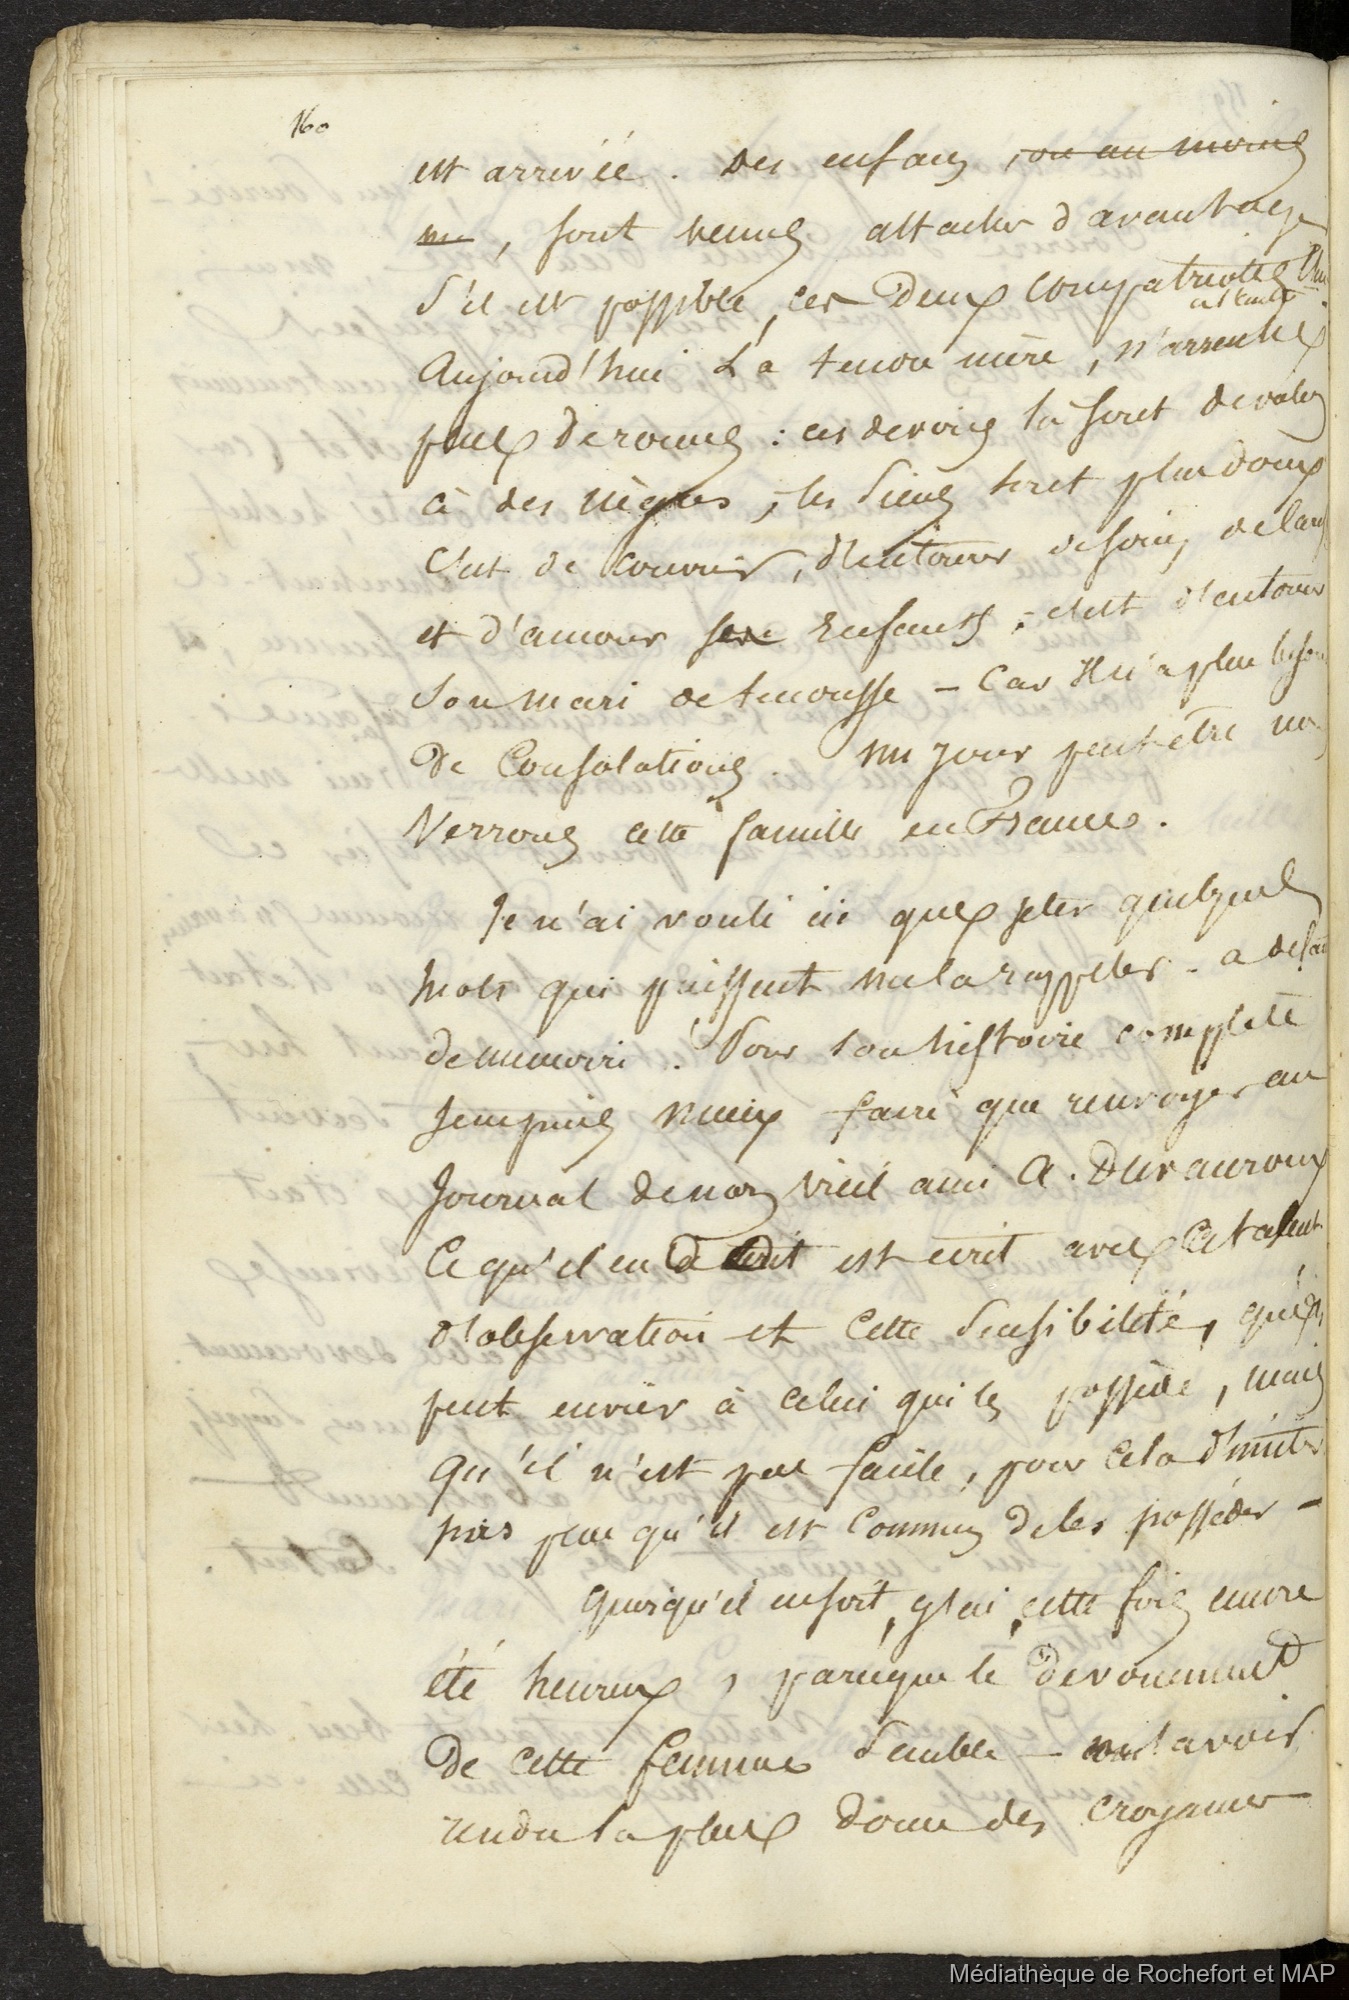 160
est arrivée. des enfans, ou au moins
un, sont venus attacher d'avantage
s'il est possible, ces deux compatriotes
Aujourd'hui La tenon mère, n'arrache
plus de roues : ces devoirs là sont dévolus
à des nègres, les siens sont plus doux
C'est de couvrir, d'entourer de soins, de
et d'amour ses Enfants ; c'est d'entourer
son mari de - Car Il n'a plus besoin
de Consolations. Un jour peut être nous
Verrons cette famille en France.
Je n'ai voulu ici que jeter quelques
mots qui puissent me la rappeler - a défaut
de mémoire. Pour son histoire complète
je ne puis mieux faire que renvoyer au
Journal de mon vieil ami A. Duvauroux
Ce qu'il en a dit est écrit avec ce talent
d'observation et cette sensibilité, qu'on
peut envier à celui qui les possède, mais
qu'il n'est pas facile, pour cela d'imiter
pas plus qu'il est commun de les posséder -
Quoiqu'il en soit, j'ai, cette fois encore
été heureux, parceque le dévouement
de cette femme semble - m'avoir
rendu la plus douce des croyances
Médiathèque de Rochefort et MAP